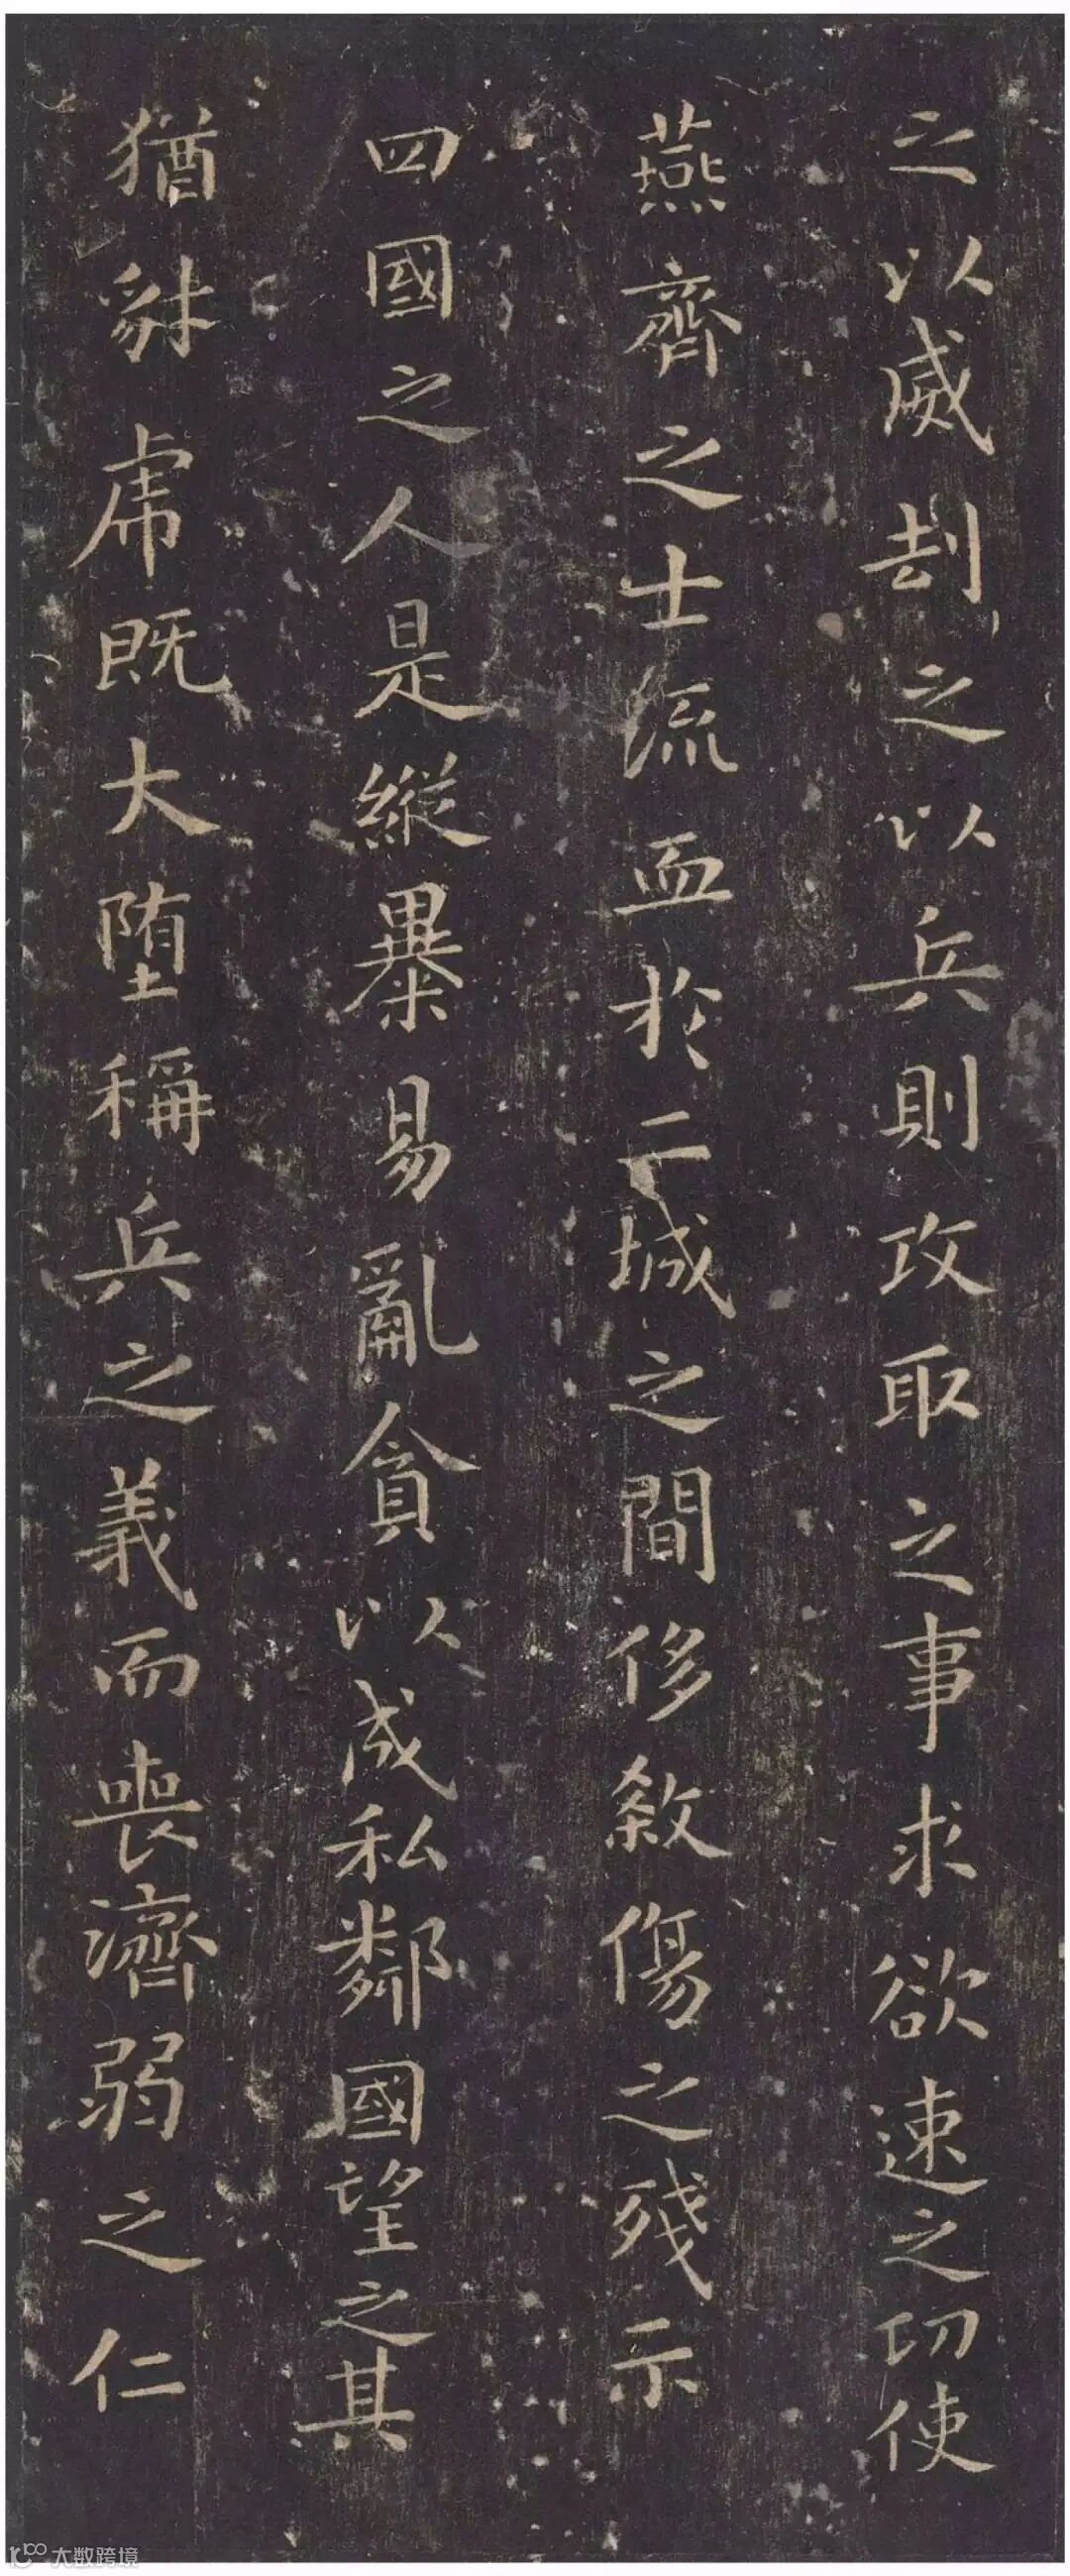 之以威刦之以兵則攻取之事求欲速之功使
燕齊之士流血於二城之間侈殺傷之殘示
四國之人是縱暴易亂貪以成私鄰國望之其
猶豺虎既大堕稱兵之義而喪濟弱之仁
大数跨境